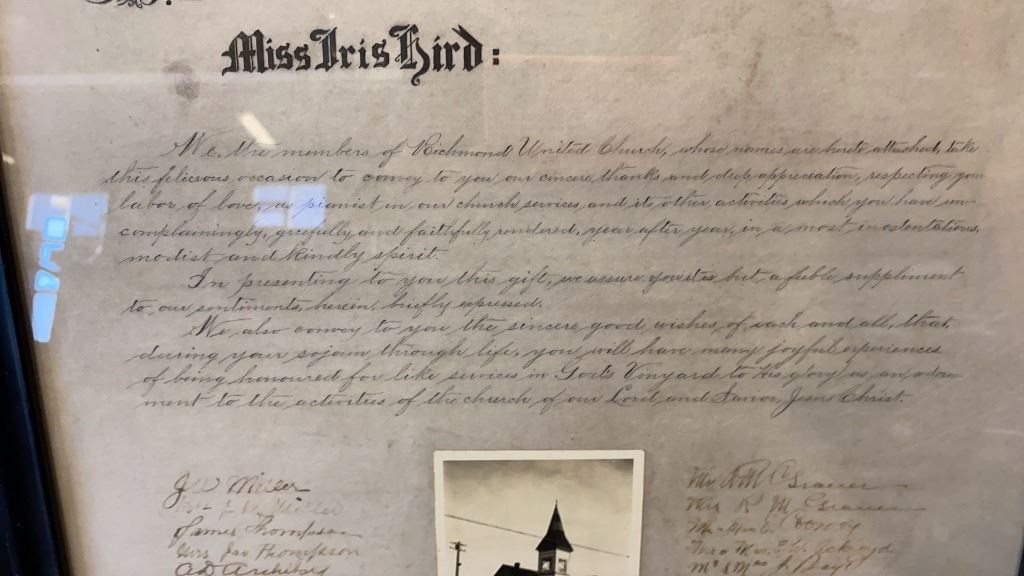 Miss Iris Hird:
We, the members of Richmond United Church, whose names are hereto attached, take
this felicious occasion to convey to you our cincere thanks and deep appreciation, respecting your
labor of love, as pianist in our church services and its other activities which you have un-
complainingly, gracefully and faithfully rendered, year after year, in a most inostentatious,
modist and kindly spirit.
In presenting to you this gift, we assure you its but a feble suppliment
to our sentiments, herein briefly expressed.
We also convey to you the sincere good wishes of each and all, that,
during your sojourn through life, you will have many joyful experiences
of being honoured for like services in God's Vinyard to His glory as an adorn-
ment to the activities of the church of our Lord and Savior, Jesus Christ.
J W Miller
Mrs J. W. Miller
James Thompson
Mrs Jas Thompson
A D Archibald
Mr
Mrs R M
Mr
Mr & Mrs
Mr & Mrs J Boyd